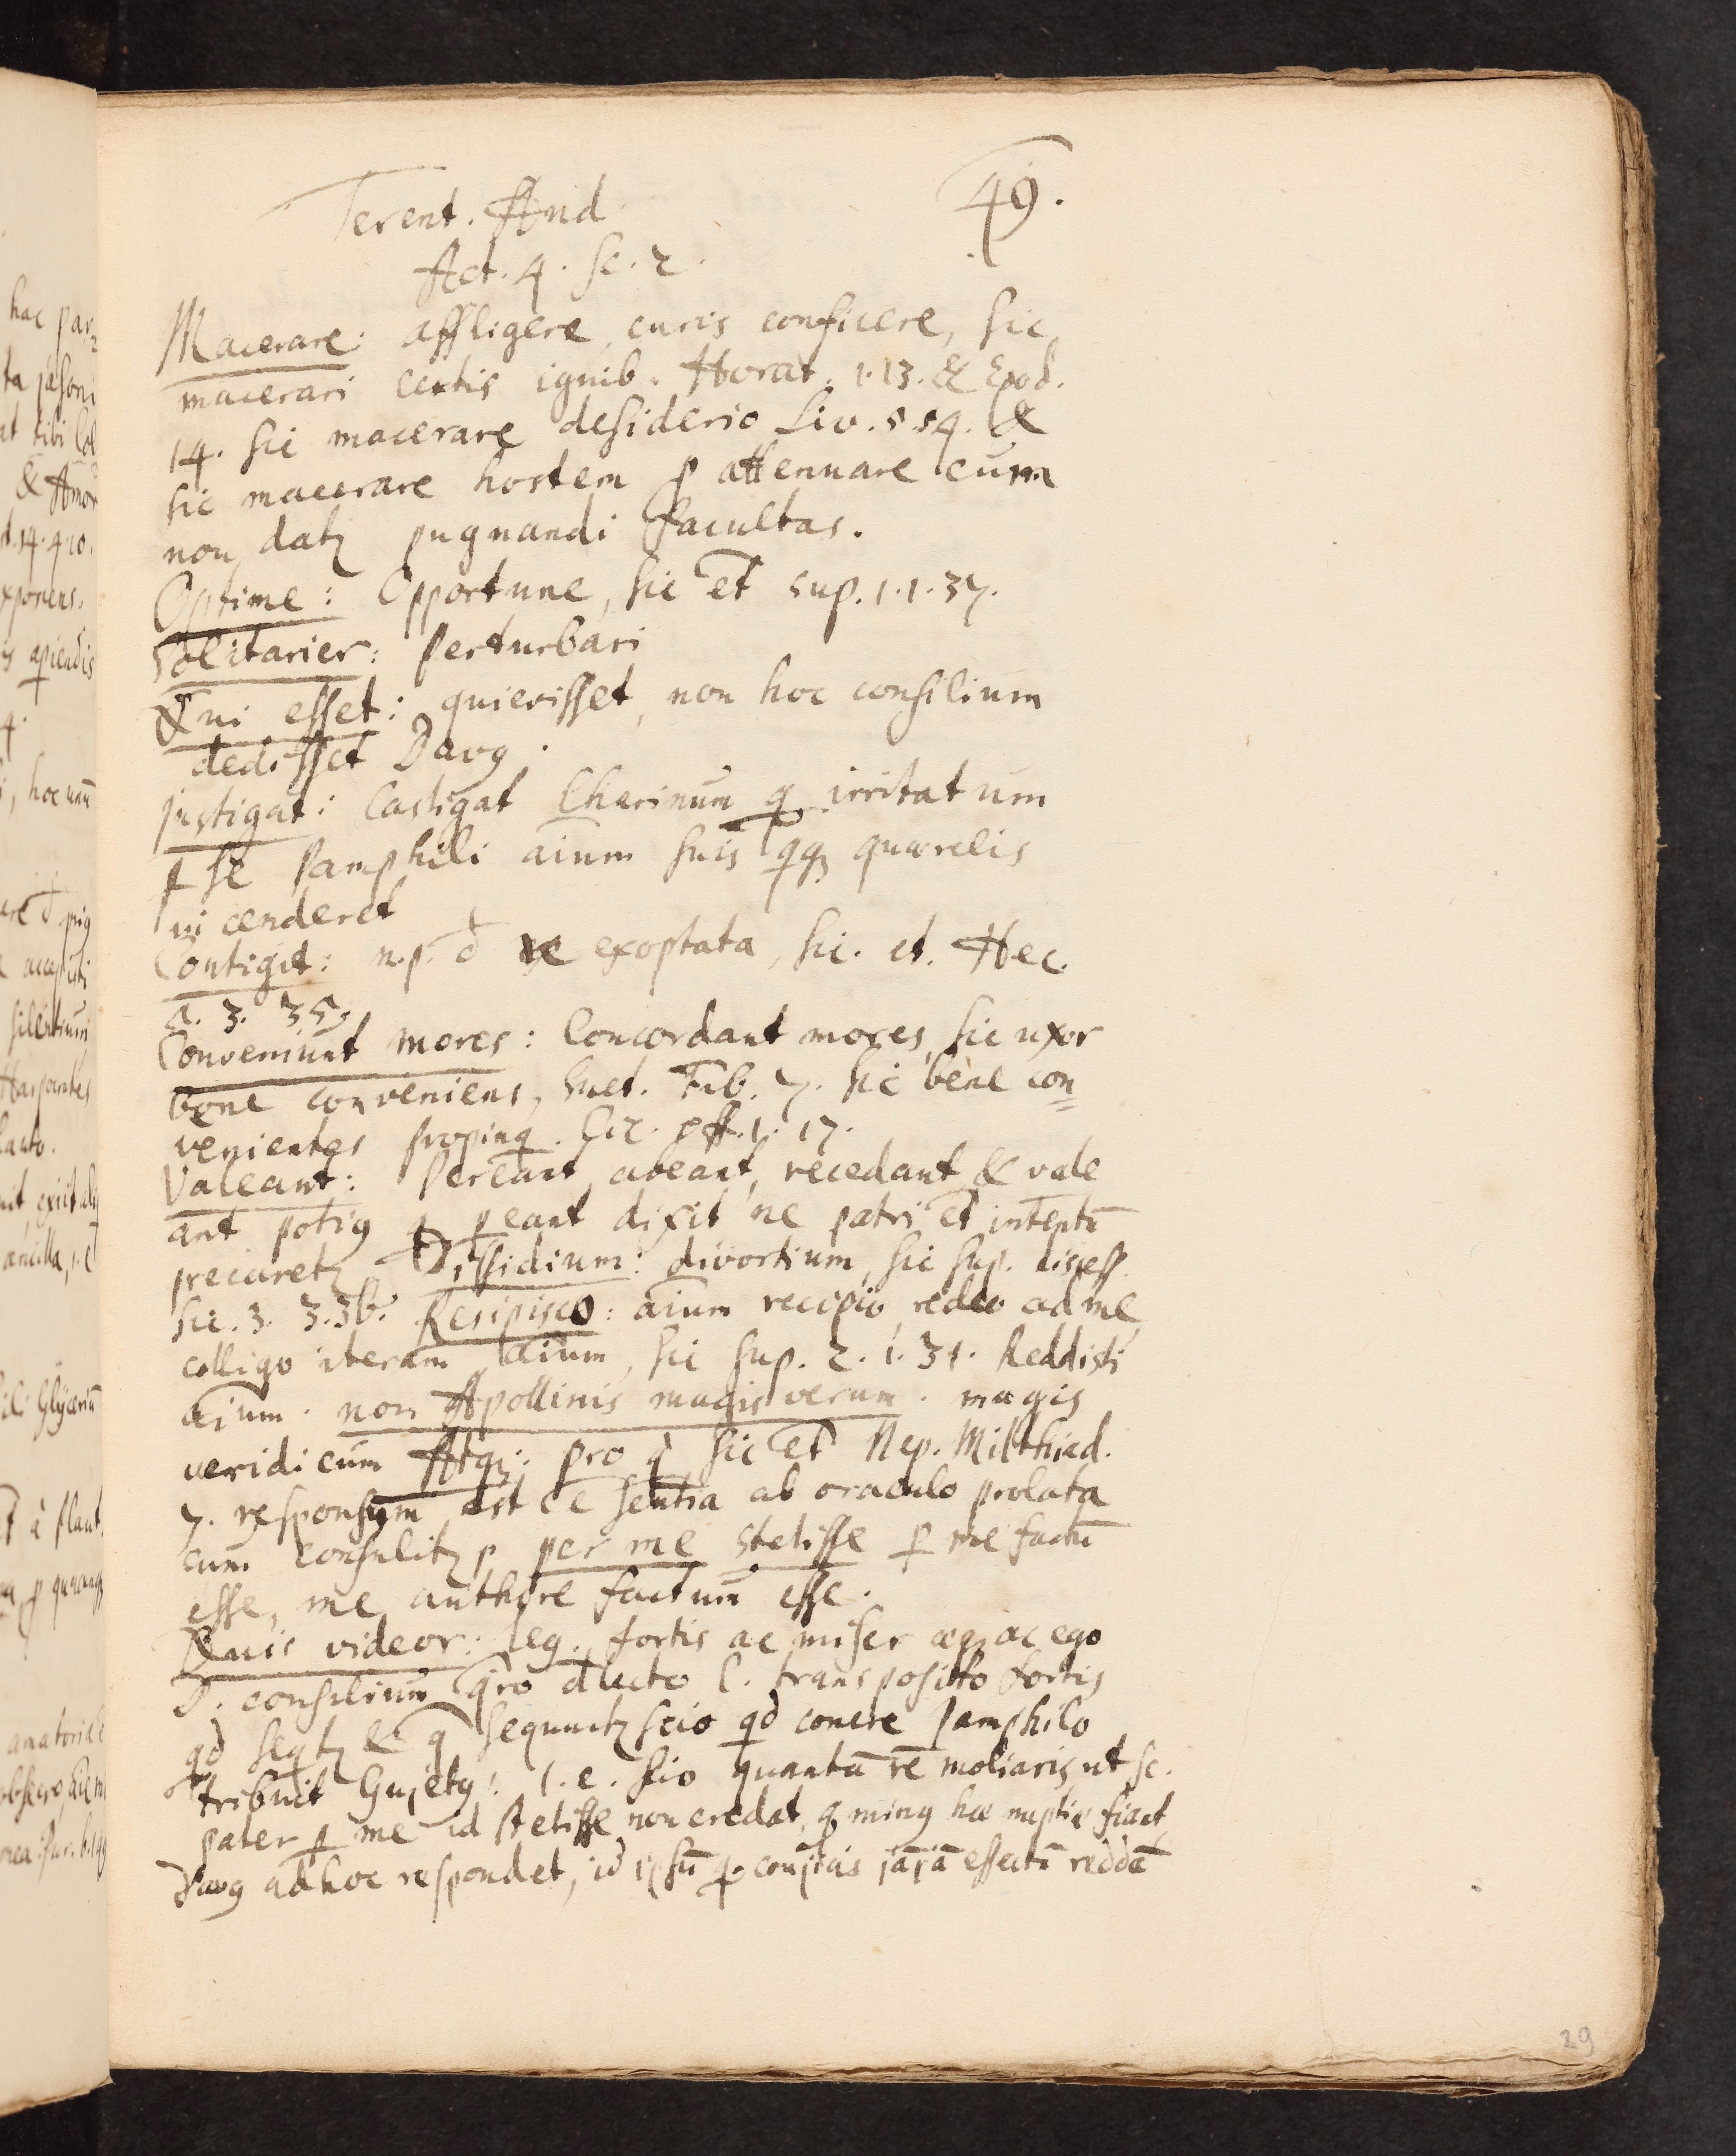 49.
Terent. And
Act. 4. Sc. 2.
Macerare: affligere, curis conficere, sic
macerari lentis ignib. Horat. 1.13. & Epod.
14. sic macerare desiderio Liv. 5.54. &
sic macerare hostem p attenuare cum
non datz pugnandi facultas.
Optime: Opportune, sic et sup. 1.1.37.
Solitarier: perturbari
Qui esset: quievisset, non hoc consilium
dedisset Davq.
Instigat: Castigat Charinum q irritatum
p se Pamphili aium suis qqz quærelis
incenderet
Contigit: n.p. d re exoptata, sic. et. Hec.
5. 3. 35.
Conveniunt mores: Concordant mores, sic uxor
bene conveniens, Suet. Tib. 7. sic bene con=
venientes propinq. Cic. off. 1. 17.
Valeant: Pereant, abeant, recedant & vale
ant potiq q peant dixit ne patri et intentū
precaretz Dissidium: divortium, sic sup. discess.
sic. 3. 3.36. Resipisco: aium recipio, redeo ad me,
colligo iteram aium, sic sup. 2. 1. 31. Reddisti
aium. non Apollinis magis verum. magis
veridicum Atqz: pro q sic et Nep. Milthiad.
7. responsum est ce sentia ab oraculo prolata
cum consulitz p per me stetisse p me factū
esse, me authore factum esse.
Quis videor: leg. fortis ac miser æqz ac ego
D. consilium qro dlecto C. transposito fortis
qd seqtz & q sequuntz scio qd conere Pamphilo
tribuit Gujetq: i.e. scio quantā rē moliaris, ut sc.
pater p me id stetisse non credat, q minq hæ nuptiæ fiant
Davq ad hoc respondet, id ipsū qo conjicis jājā effectū reddā
29